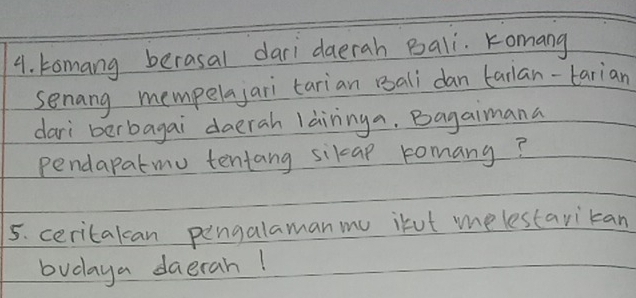 4. Komang berasal dari daerah Bali. Komang
senang mempelajari tarian Bali dan tarian-tarian
dari berbagai daerah lainnya. Bagaimana
pendapatmu tentang sikap Komang?
5. ceritakan pengalamanmu ikut melestarikan
budaya daerah!